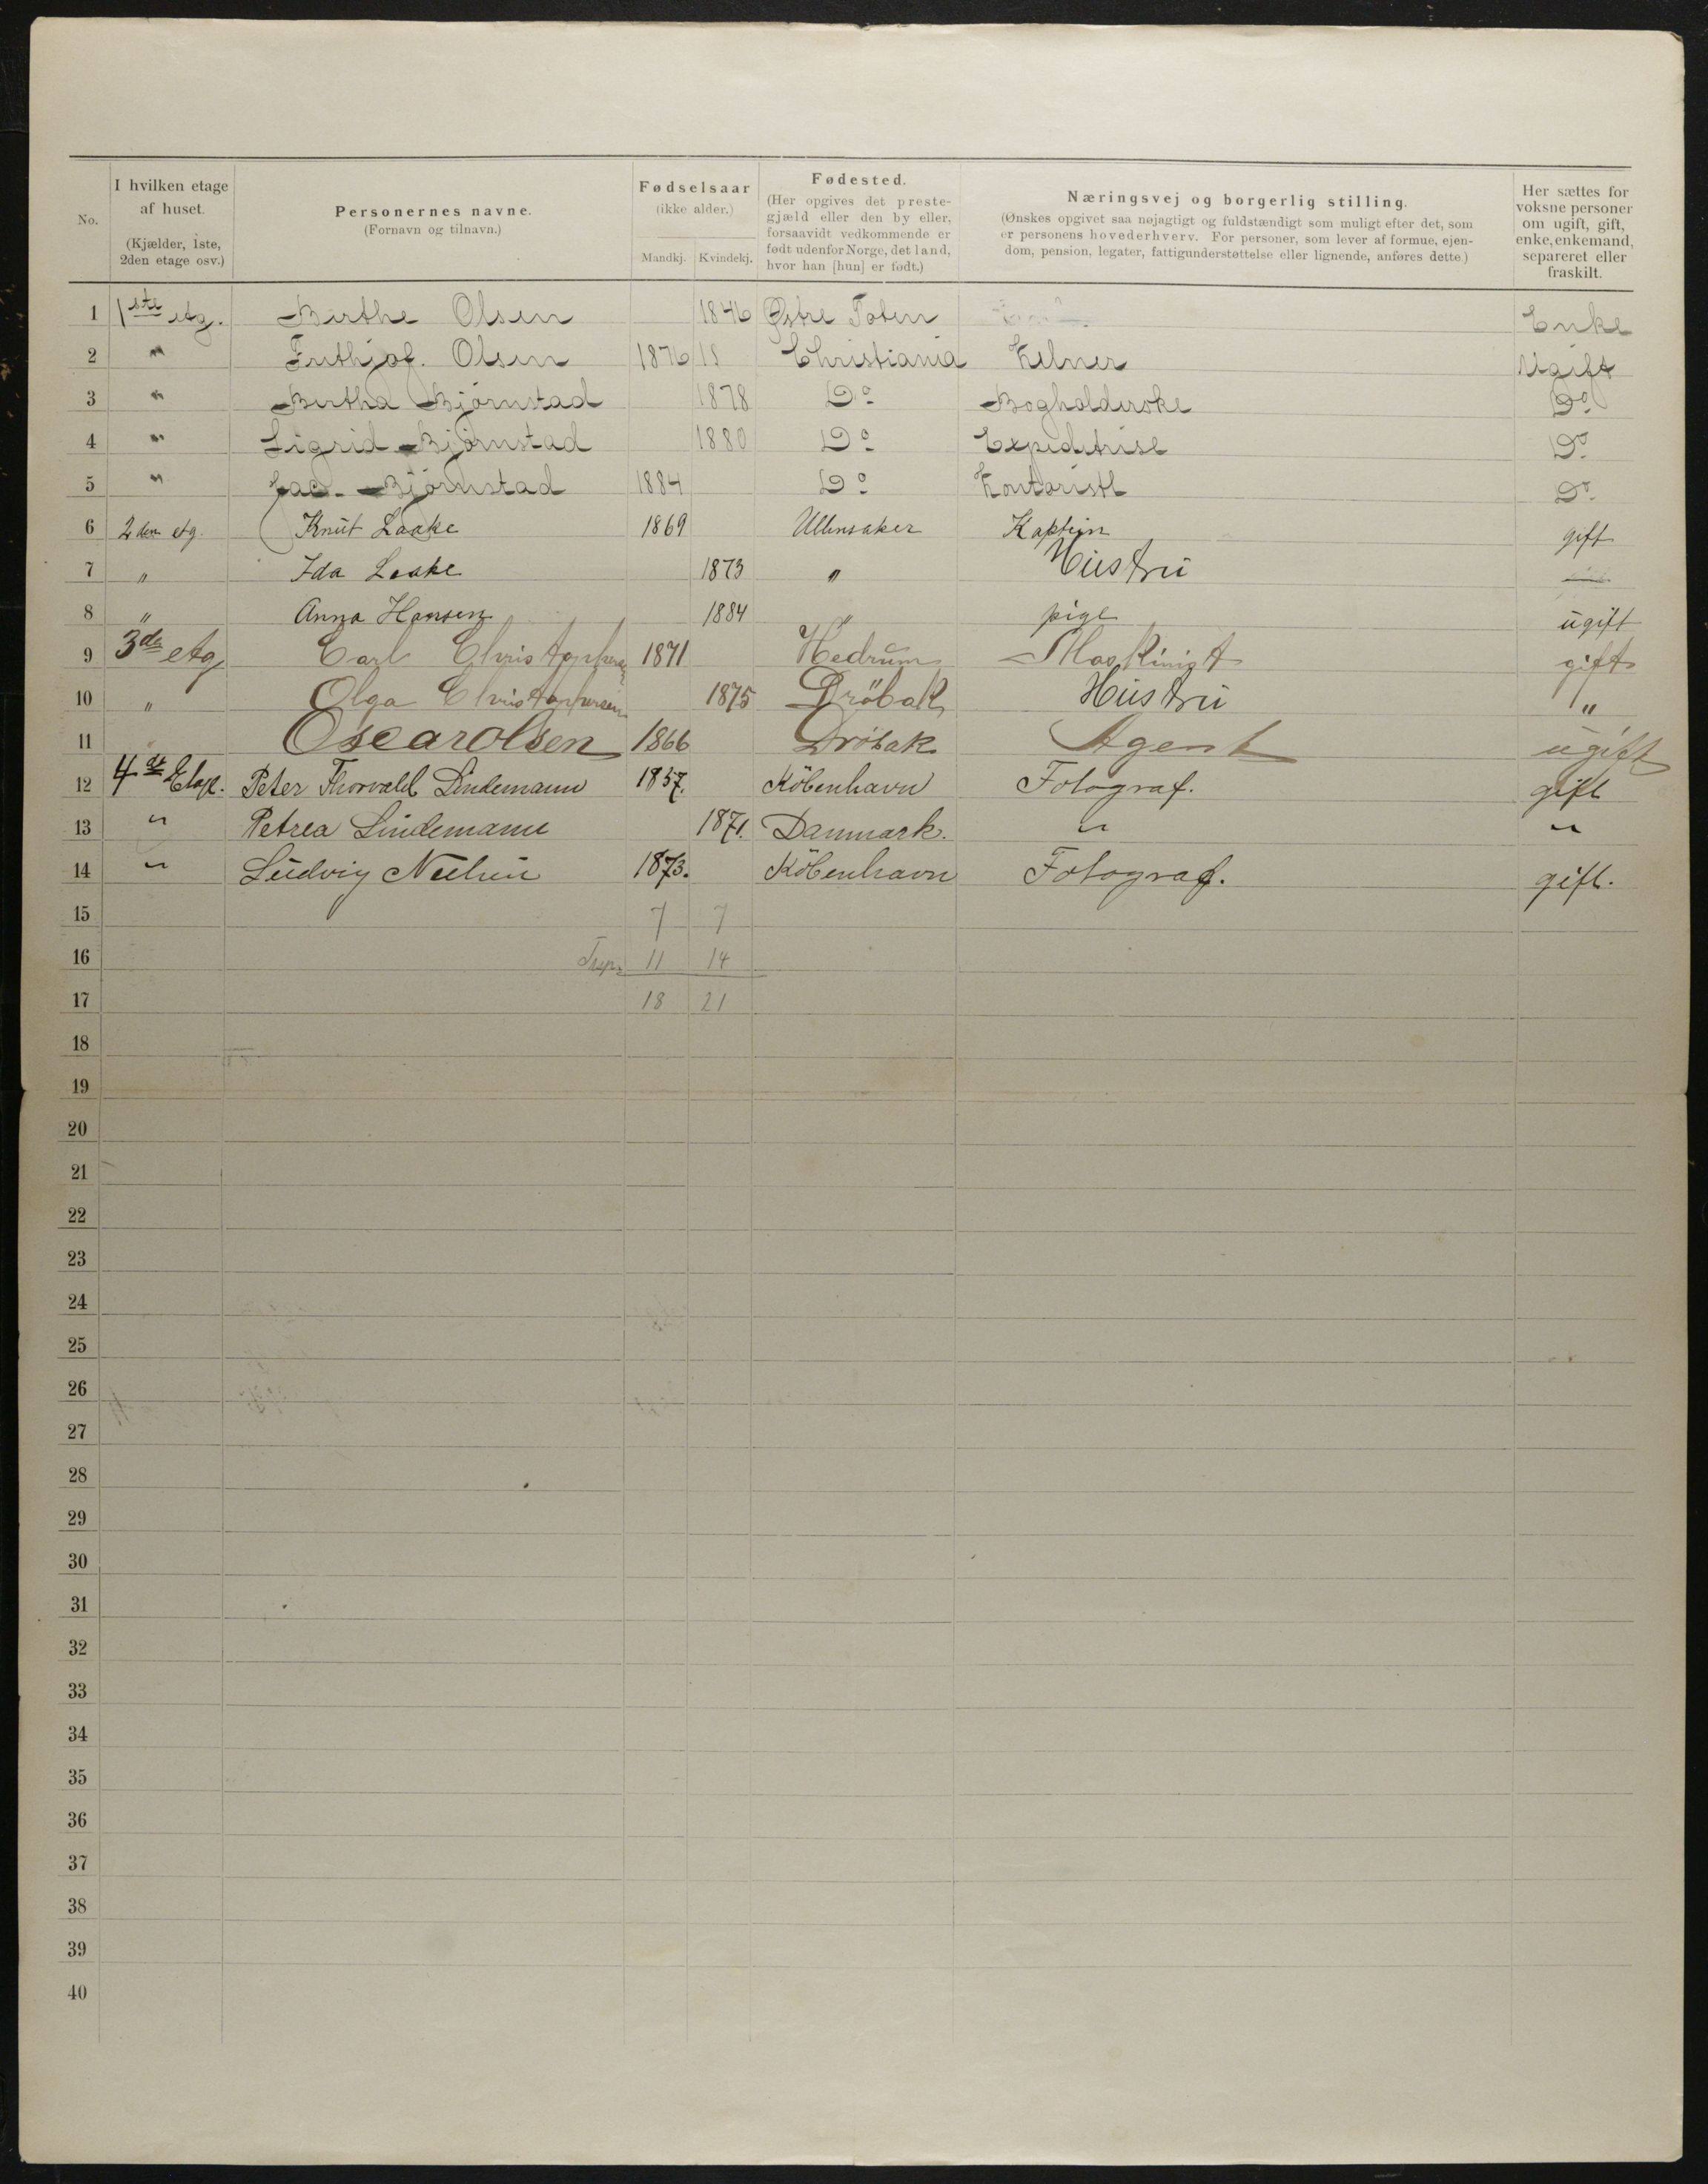 No.
I hvilken etage af huset.
(Kjælder, 1ste, 2den etage osv.)
Personernes navne.
(Fornavn og tilnavn.)
Fødselsaar
(ikke alder.)
Mandkj. Kvindekj.
Fødested.
(Her opgives det preste-
gjæld eller den by eller,
forsaavidt vedkommende er
født udenfor Norge, det land,
hvor han [hun] er født.)
Næringsvej og borgerlig stilling.
(Ønskes opgivet saa nøjagtigt og fuldstændigt som muligt efter det, som
er personens hovederhverv. For personer, som lever af formue, ejen-
dom, pension, legater, fattigunderstøttelse eller lignende, anføres dette.)
Her sættes for
voksne personer
om ugift, gift,
enke, enkemand,
separeret eller
fraskilt.
1 1ste etg. Birthe Olsen 1846 Østre Toten Enke
2 " Frithjof. Olsen 1876 18 Christiania Kelner Ugift
3 " Bertha Bjørnstad 1878 Do Bogholderske Do
4 " Sigrid Bjørnstad 1880 Do Expeditrise Do
5 " Jac. Bjørnstad 1884 Do Kontorist Do
6 2den etg. Knut Laake 1869 Ullensaker Kaptein gift
7 " Ida Laake 1873 " Hustru
8 " Anna Hansen 1884 " pige ugift
9 3de etg Carl Christophersen 1871 Hedrum Maskinist gift
10 " Olga Christophersen 1875 Dröbak Hustru "
11 Oscar Olsen 1866 Dröbak Agent ugift
12 4de Etage. Peter Thorvald Lindemann 1857. Köbenhavn Fotograf. gift
13 " Petrea Lindemann 1871. Danmark. " "
14 " Ludvig Nielsen 1873. Köbenhavn Fotograf. gift.
15 7 7
16 11 14
17 18 21
18
19
20
21
22
23
24
25
26
27
28
29
30
31
32
33
34
35
36
37
38
39
40